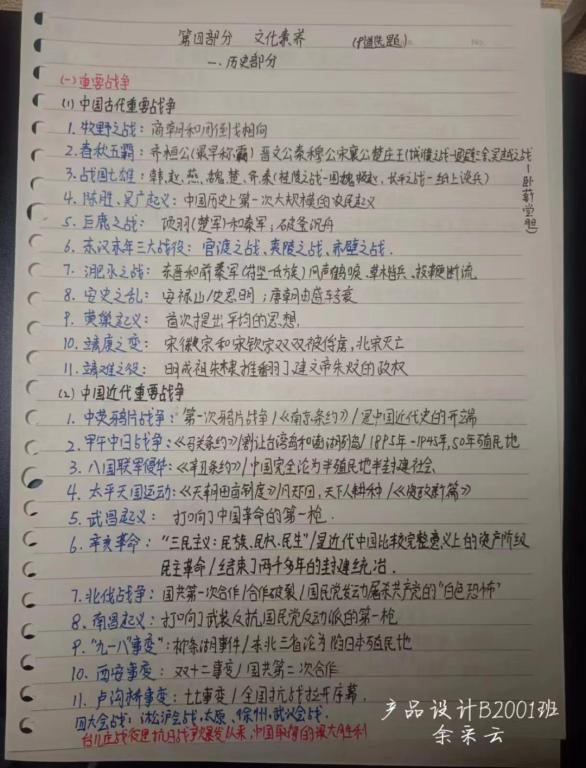 第四部分 文化素养 (单选题)
一、历史部分
(一)重要战争
(1)中国古代重要战争
1. 牧野之战：商朝和周 倒戈相向
2. 春秋五霸：齐桓公(最早称霸)晋文公秦穆公宋襄公楚庄王(城濮之战-退避三舍 吴越之战-卧薪尝胆)
3. 战国七雄：韩、赵、燕、魏、楚、齐、秦(桂陵之战-围魏救赵、长平之战-纸上谈兵)
4. 陈胜、吴广起义：中国历史上第一次大规模的农民起义
5. 巨鹿之战：项羽(楚军)和秦军；破釜沉舟
6. 东汉末年三大战役：官渡之战、夷陵之战、赤壁之战.
7. 淝水之战：东晋和前秦军(苻坚-氐族)风声鹤唳、草木皆兵、投鞭断流
8. 安史之乱：安禄山/史思明；唐朝由盛转衰
9. 黄巢起义：首次提出平均的思想.
10. 靖康之变：宋徽宗和宋钦宗双双被俘虏，北宋灭亡
11. 靖难之役：明成祖朱棣推翻了建文帝朱炆的政权
(2)中国近代重要战争
1. 中英鸦片战争：第一次鸦片战争/《南京条约》/是中国近代史的开端
2. 甲午中日战争：《马关条约》/割让台湾岛和澎湖列岛/1895年-1945年，50年殖民地
3. 八国联军侵华：《辛丑条约》/中国完全沦为半殖民地半封建社会.
4. 太平天国运动：《天朝田亩制度》/凡天下田，天下人耕种/《资政新篇》
5. 武昌起义：打响了中国革命的第一枪.
6. 辛亥革命："三民主义：民族、民权、民生"/是近代中国比较完整意义上的资产阶级
民主革命/结束了两千多年的封建统治.
7. 北伐战争：国共第一次合作/合作破裂/国民党发动屠杀共产党的"白色恐怖"
8. 南昌起义：打响了武装反抗国民党反动派的第一枪
9. "九一八"事变"：柳条湖事件/东北三省沦为日本殖民地
10. 西安事变：双十二事变/国共第二次合作
11. 卢沟桥事变：七七事变/全国抗战拉开序幕.
四大会战：淞沪会战，太原、徐州，武汉会战.
台儿庄战役是抗日战争爆发以来，中国取得的最大胜利
产品设计B2001班
余采云